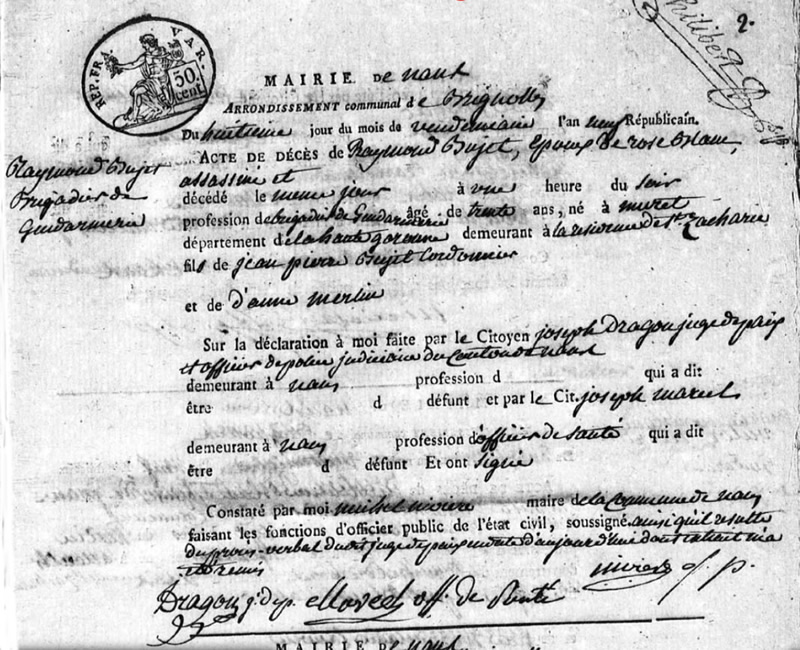 2.
Philibert
REP. FRA. VAR.
50. cent.
MAIRIE De nans
ARRONDISSEMENT communal de Brignolles
Du huitieme jour du mois de vendemiaire l'an neuf Républicain.
ACTE DE DÉCÈS de Raymond Bujet, Epoux De rose Blanc,
assassiné et
décédé le meme jour à une heure du soir
profession de brigadier de Gendarmerie âgé de trente ans, né à muret
département de la haute garonne demeurant à la residence de St. Zacharie
fils de jean pierre Bujet Cordonnier
et de d'anne merlin
Raymond Bujet
Brigadier de
Gendarmerie
Sur la déclaration à moi faite par le Citoyen joseph Dragon juge de paix
et officier de police judiciaire du Canton de nans
demeurant à nans profession d qui a dit
être d défunt et par le Cit. joseph marcel
demeurant à nans profession d'officier de santé qui a dit
être d défunt Et ont signé
Constaté par moi michel riviere maire de la Commune de nans
faisant les fonctions d'officier public de l'état civil, soussigné ainsi qu'il resulte
du procès-verbal dudit juge de paix d'aujourd'hui dont extrait m'a
été remis
Dragon j. d. p. Marcel off. de Santé
MAIRIE de nans